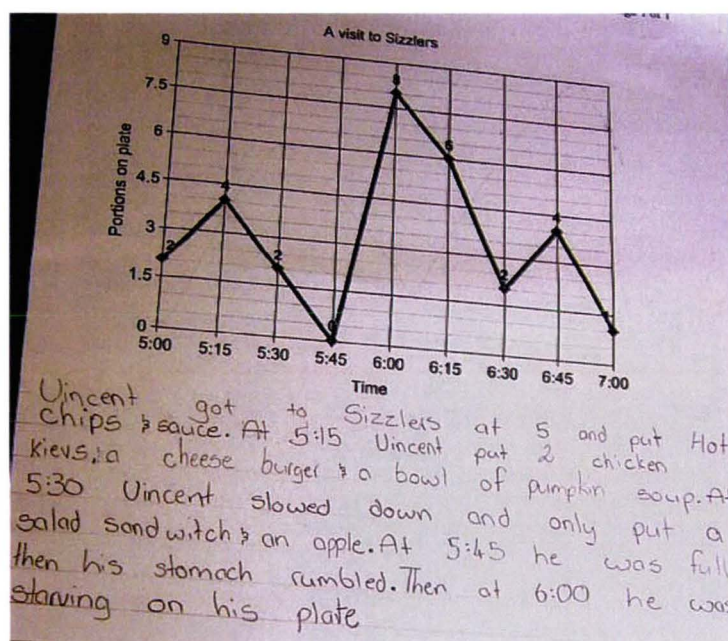 A visit to Sizzlers
Portions on plate
9
7.5
6
4.5
3
1.5
0
2
4
2
0
8
6
2
4
1
5:00 5:15 5:30 5:45 6:00 6:15 6:30 6:45 7:00
Time
Vincent got to Sizzlers at 5 and put Hot
chips & sauce. At 5:15 Vincent put 2 chicken
kievs, a cheese burger & a bowl of pumpkin soup. At
5:30 Vincent slowed down and only put a
salad sandwitch & an apple. At 5:45 he was full
then his stomach rumbled. Then at 6:00 he was
starving on his plate